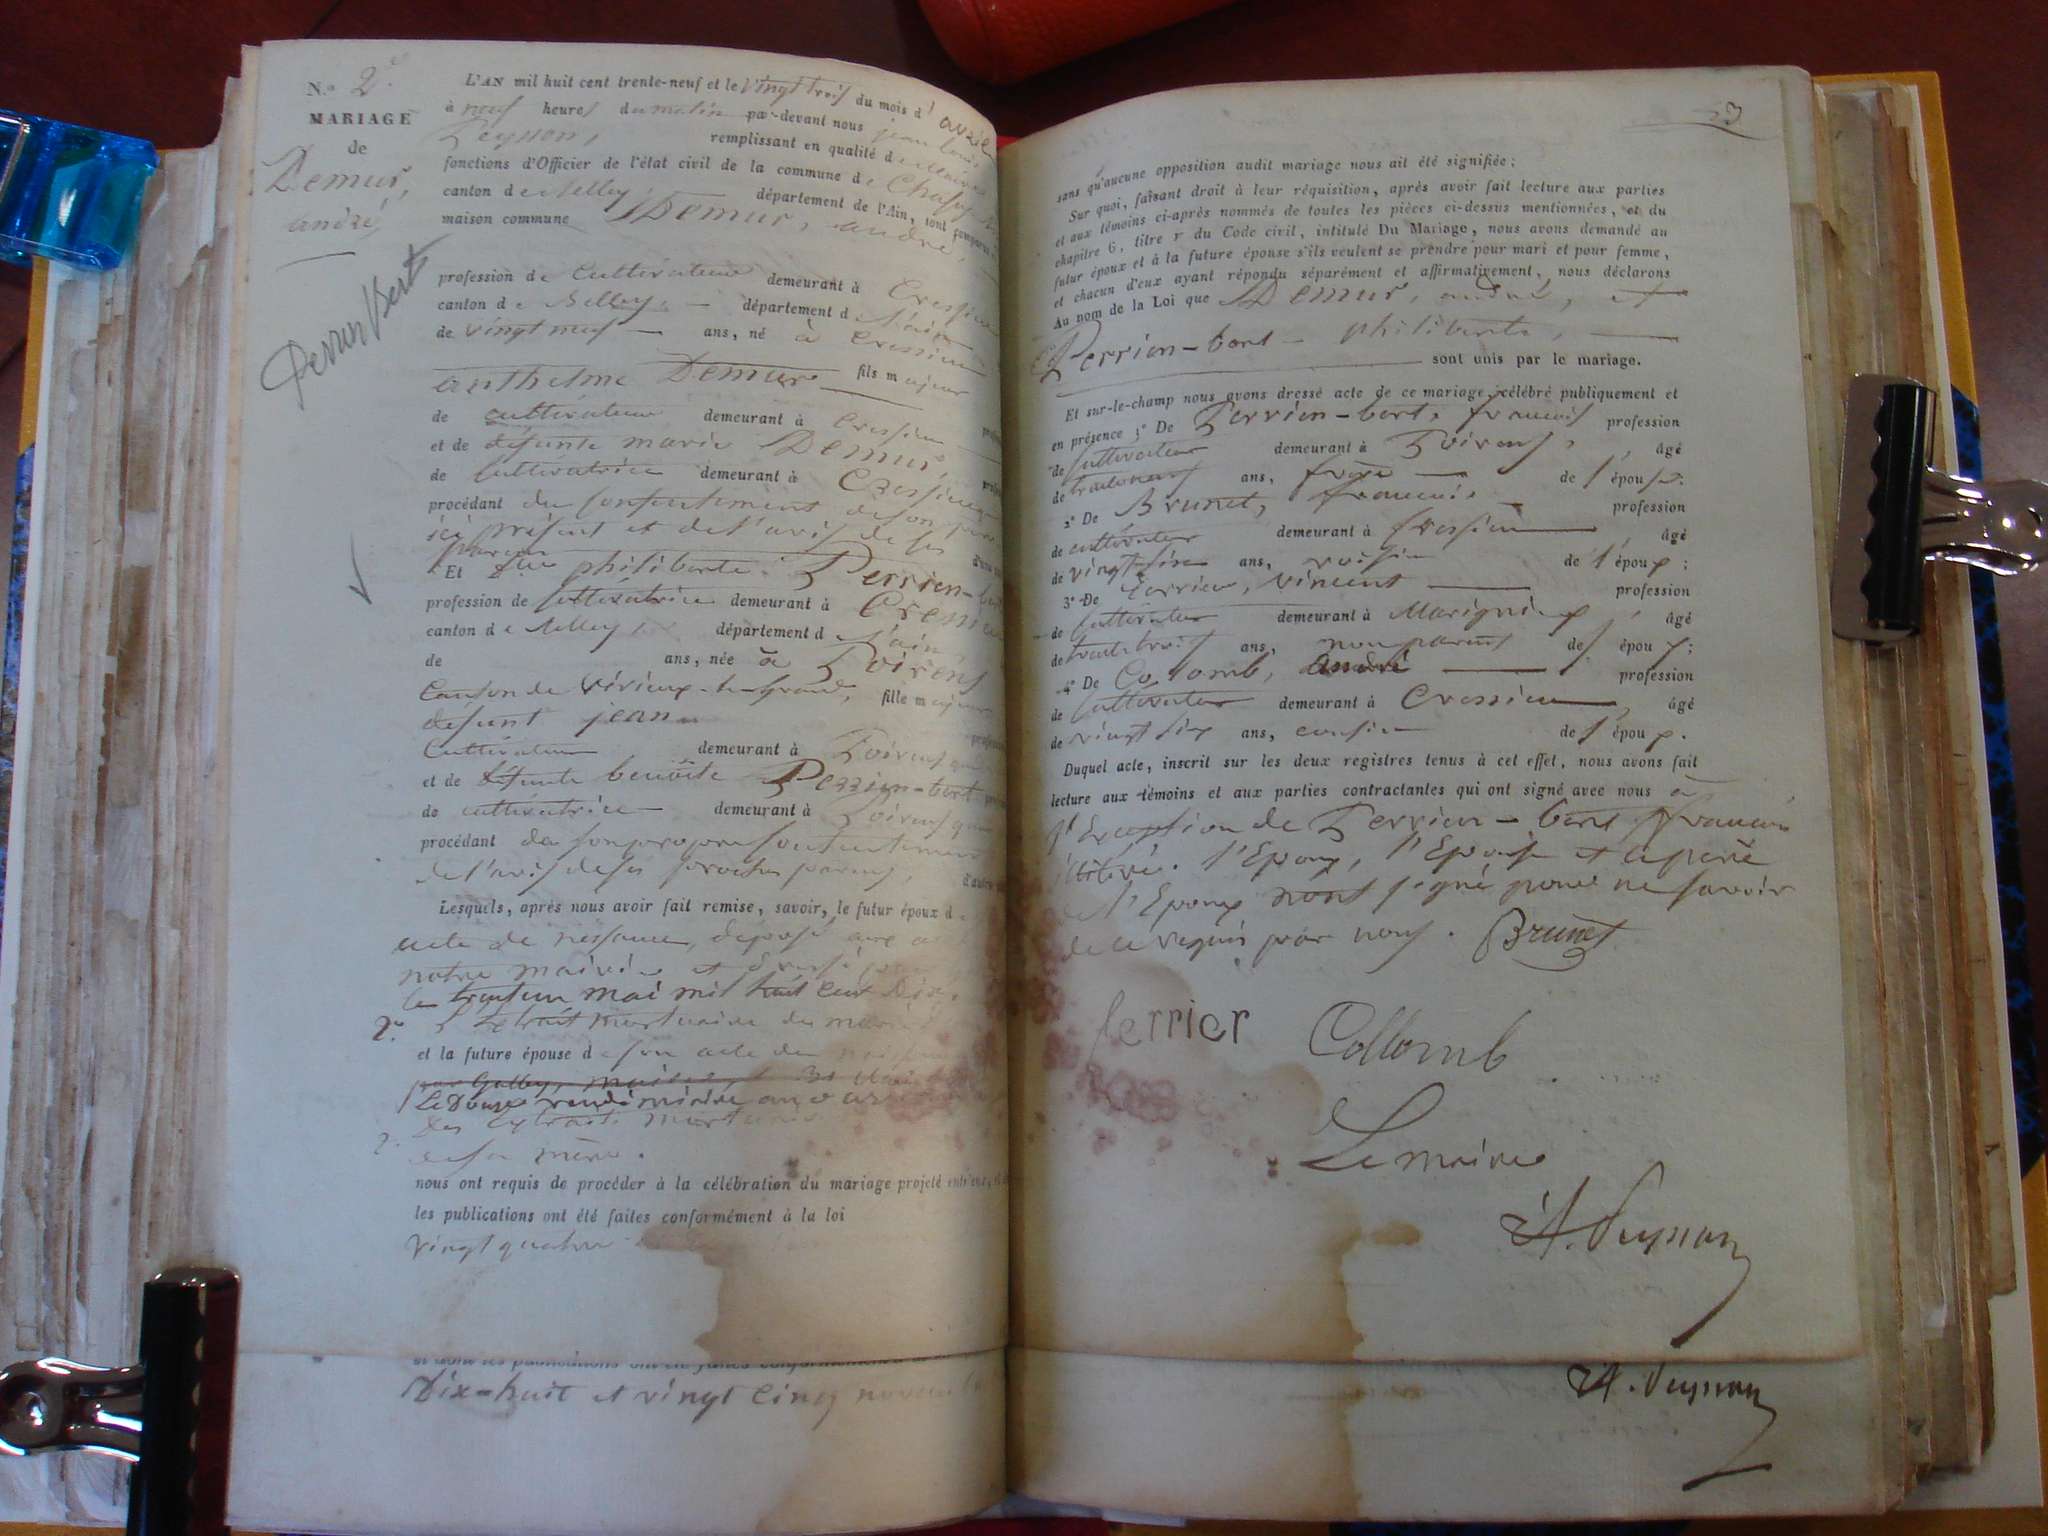 N.o 2.e
MARIAGE
de
Demur,
andré,
Perrin Bert
L'AN mil huit cent trente-neuf et le vingt trois du mois d'avril
à neuf heures du matin par-devant nous jean louis
Peysson, remplissant en qualité de Maire
fonctions d'Officier de l'état civil de la commune de
canton de Belley, département de l'Ain, sont
maison commune Demur, andré,
profession de Cultivateur demeurant à Cressieu
canton de Belley, département de l'ain
de vingt neuf ans, né à Cressieu
fils majeur
anthelme Demur
de cultivateur demeurant à Cressieu
et de défunte marie Demur,
de Cultivatrice demeurant à Cressieu
procédant du consentement de son père
ici présent et de l'avis de ses
parens
Et philiberte Perrien-
profession de cultivatrice demeurant à Cressieu
canton de Belley, département de l'ain,
de ans, née à
Canton de Virieux-le-grand, fille majeure
défunt jean
Cultivateur demeurant à
et de défunte benoite Perrin-bert
de cultivatrice demeurant à
procédant de son propre consentement
de l'avis de ses proches parens,
Lesquels, après nous avoir fait remise, savoir, le futur époux d
acte de naissance, déposé aux
notre mairie et dressé
le trente un mai mil huit cent dix.
2.o L'extrait mortuaire de
et la future épouse de son acte de
Le Douze vendémiaire an
2. Des extraits mortuaires
de sa mère.
nous ont requis de procéder à la célébration du mariage projeté entr'eux,
les publications ont été faites conformément à la loi
vingt quatre
Dix-huit et vingt cinq
sans qu'aucune opposition audit mariage nous ait été signifiée;
Sur quoi, faisant droit à leur réquisition, après avoir fait lecture aux parties
et aux témoins ci-après nommés de toutes les pièces ci-dessus mentionnées, et du
chapitre 6, titre 5 du Code civil, intitulé Du Mariage, nous avons demandé au
futur époux et à la future épouse s'ils veulent se prendre pour mari et pour femme,
et chacun d'eux ayant répondu séparément et affirmativement, nous déclarons
Au nom de la Loi que Demur, andré, et
Perrien-bert philiberte,
sont unis par le mariage.
Et sur-le-champ nous avons dressé acte de ce mariage, célébré publiquement et
en présence 1° De Perrien-bert, francois profession
de cultivateur demeurant à âgé
de trente neuf ans, frère de l'épouse.
2° De Brunet, francois profession
de cultivateur demeurant à Cressieu âgé
de vingt six ans, voisin de l'époux;
3° De Ferrier, vincent profession
de Cultivateur demeurant à Marignieu, âgé
de trente trois ans, non parent des époux;
4° De Colomb, andré profession
de Cultivateur demeurant à Cressieu, âgé
de vingt six ans, cousin de l'époux.
Duquel acte, inscrit sur les deux registres tenus à cet effet, nous avons fait
lecture aux témoins et aux parties contractantes qui ont signé avec nous à
l'Exception de Perrien-bert francois
illitéré. l'Epoux, l'Epouse et le père
de l'Epoux n'ont signé pour ne savoir
de ce requis par nous. Brunet
ferrier Collomb
Le maire
Peysson
Peysson